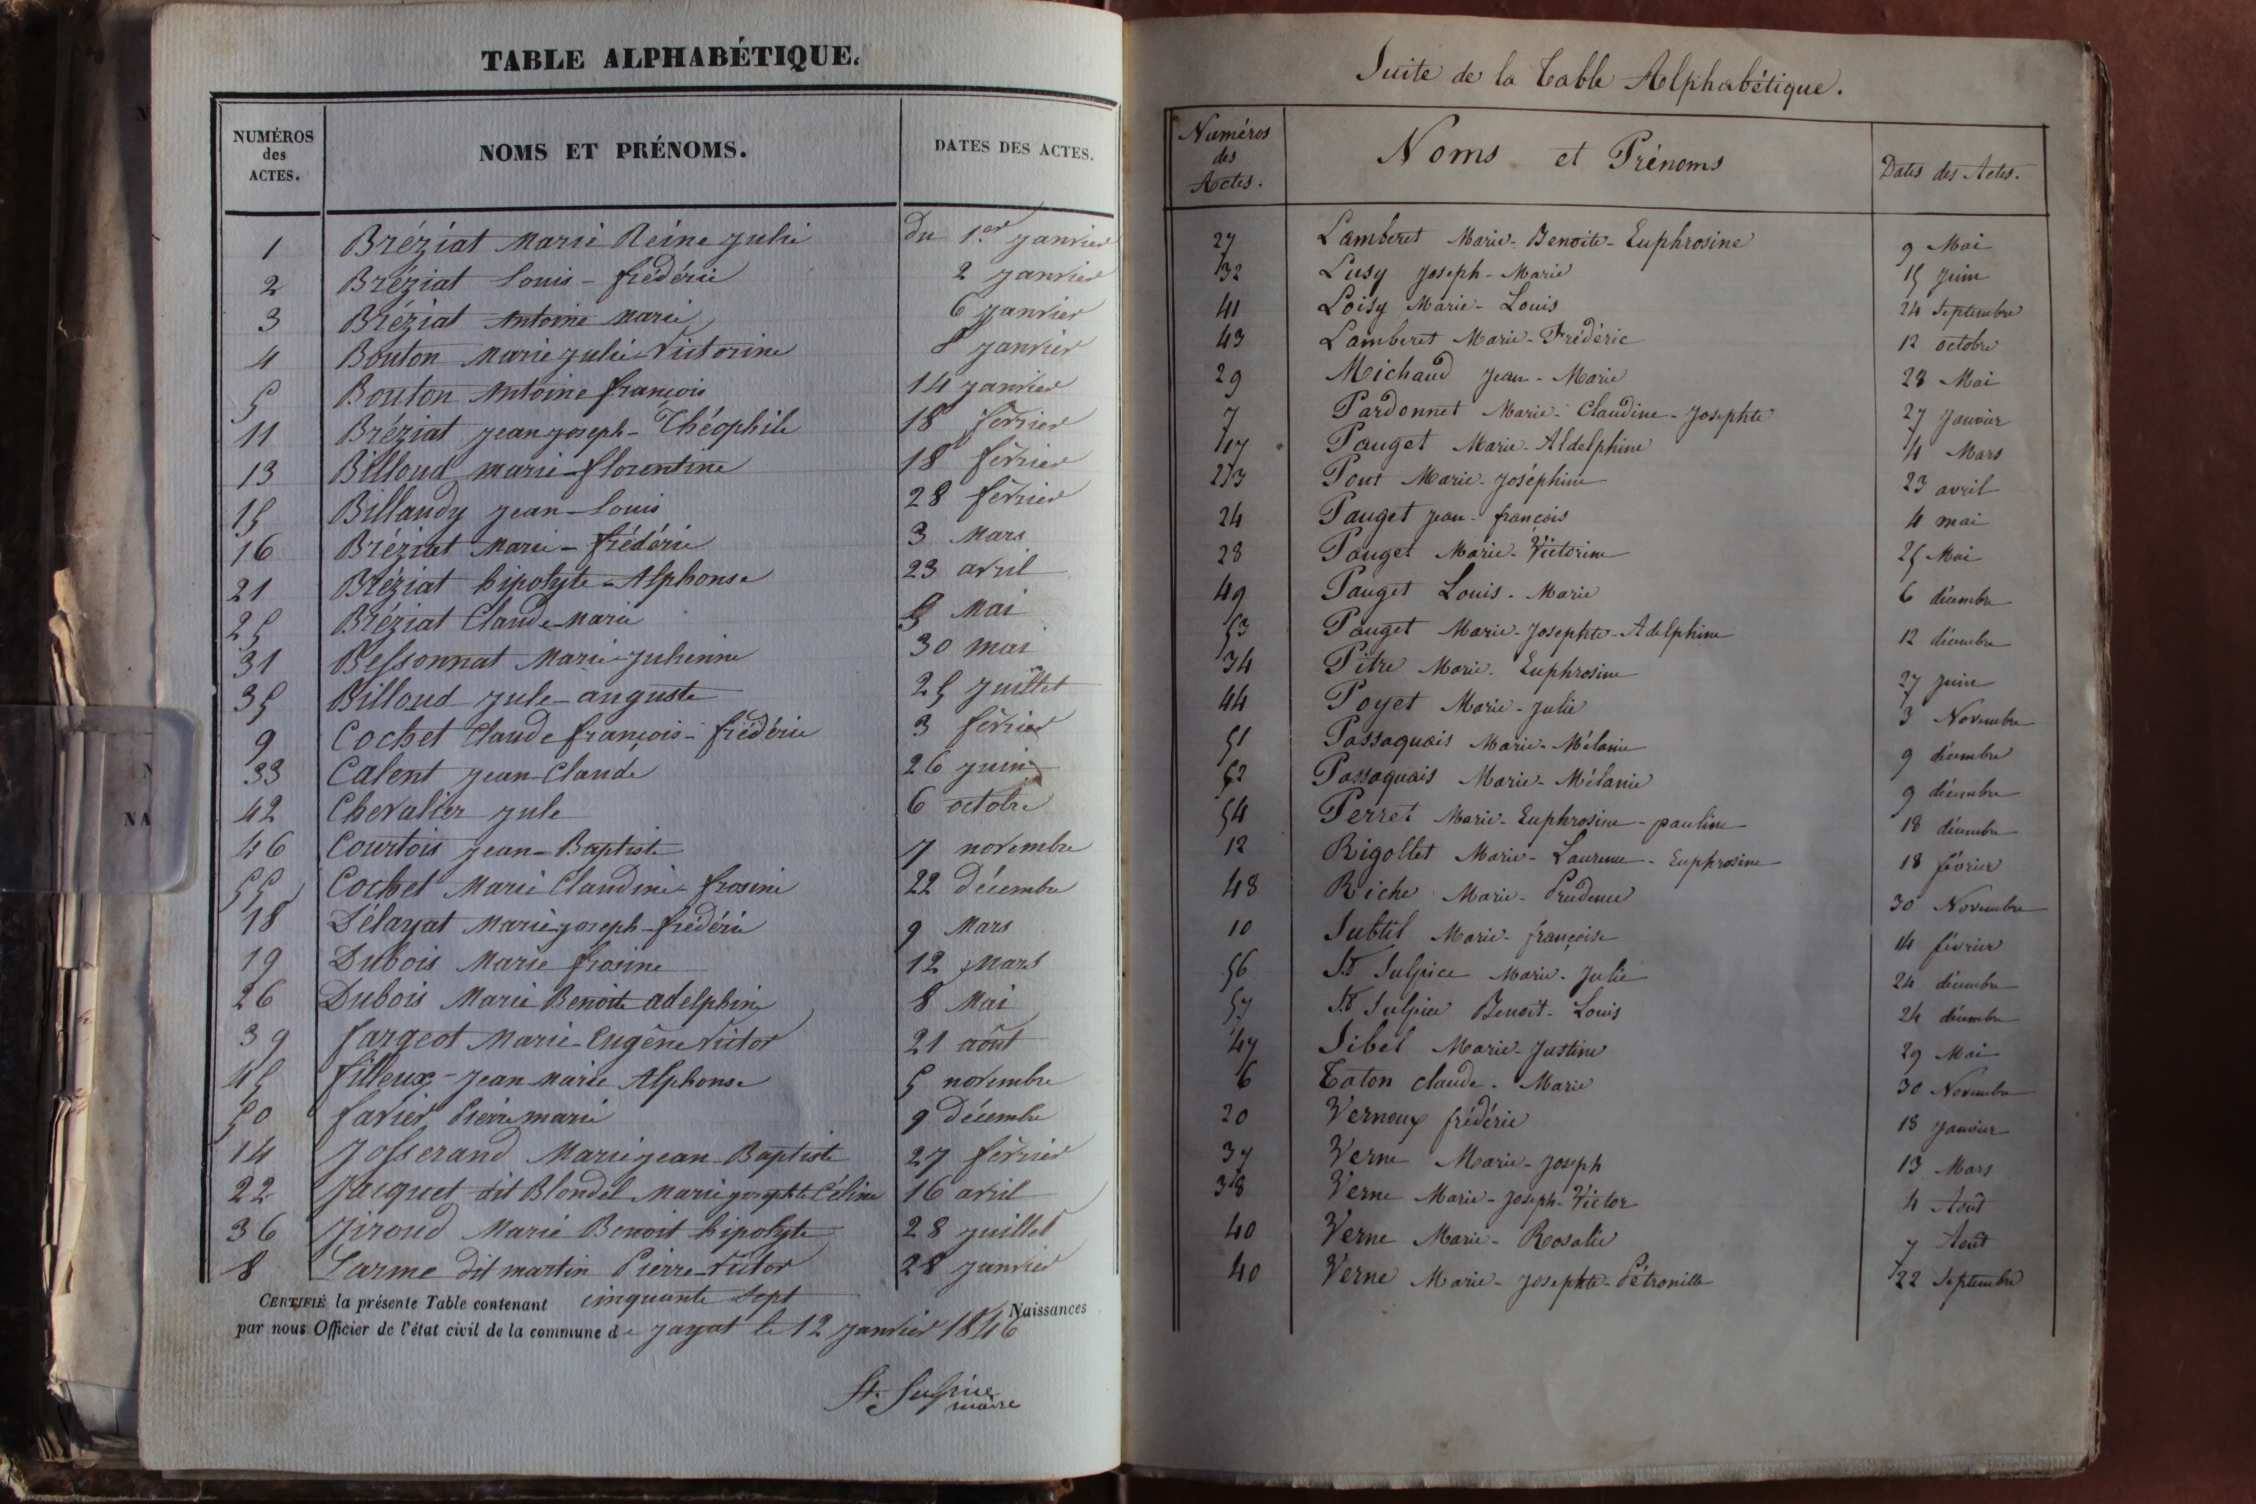 TABLE ALPHABÉTIQUE.
NUMÉROS des ACTES. NOMS ET PRÉNOMS. DATES DES ACTES.
1 Bréziat Marie Reine Julie du 1.er Janvier
2 Bréziat Louis - frédéric 2 Janvier
3 Bréziat Antoine Marie 6 Janvier
4 Bouton Marie Julie Victorine 8 Janvier
5 Bouton Antoine françois 14 Janvier
11 Bréziat jean joseph - Théophile 18 février
13 Billoud marie florentine 18 février
15 Billaudy jean - Louis 28 février
16 Bréziat Marie - frédéric 3 Mars
21 Bréziat hipolyte - Alphonse 23 avril
25 Bréziat Claude Marie 5 Mai
31 Bessonnat Marie Julienne 30 mai
35 Billoud Jule auguste 25 Juillet
9 Cochet Claude françois - frédéric 3 février
33 Calent jean Claude 26 juin
42 Chevalier jule 6 octobre
46 Courtois jean - Baptiste 7 novembre
55 Cochet Marie Claudine frosine 22 décembre
18 Délayat Marie joseph - frédéric 9 Mars
19 Dubois Marie frosine 12 Mars
26 Dubois Marie Benoite adelphine 8 Mai
39 fargeot Marie - Eugène Victor 21 août
45 filleux - Jean Marie Alphonse 5 novembre
50 favier Pierre marie 9 décembre
14 Josserand Marie jean Baptiste 27 février
22 Jacquet dit Blondel Marie josephte Céline 16 avril
36 Jiroud Marie Benoit hipolyte 28 juillet
8 Larme dit martin Pierre Victor 28 janvier
CERTIFIÉ la présente Table contenant cinquante sept Naissances
par nous Officier de l'état civil de la commune de jayat le 12 janvier 1846
St. Sulpice
maire
Suite de la Table Alphabétique.
Numéros des Actes. Noms et Prénoms Dates des Actes.
27 Lamberet Marie - Benoite - Euphrosine 9 Mai
32 Lusy Joseph - Marie 15 Juin
41 Loisy Marie - Louis 24 Septembre
43 Lamberet Marie - Frédéric 12 octobre
29 Michaud Jean - Marie 28 Mai
7 Pardonnet Marie - Claudine - Josephte 27 Janvier
17 Pauget Marie - Aldelphine 4 Mars
23 Pont Marie - Joséphine 23 avril
24 Pauget Jean - françois 4 mai
28 Pauget Marie - Victorine 25 Mai
49 Pauget Louis - Marie 6 décembre
53 Pauget Marie - Josephte - Adelphine 12 décembre
34 Pitre Marie - Euphrosine 27 Juin
44 Poyet Marie - Julie 3 Novembre
51 Passaquais Marie - Mélanie 9 décembre
52 Passaquais Marie - Mélanie 9 décembre
54 Perret Marie - Euphrosine - pauline 18 décembre
12 Rigollet Marie - Laurence - Euphrosine 18 février
48 Riche Marie - Prudence 30 Novembre
10 Subtil Marie - françoise 14 février
56 St Sulpice Marie - Julie 24 décembre
57 St Sulpice Benoit - Louis 24 décembre
47 Sibel Marie - Justine 29 Mai
6 Taton claude - Marie 30 Novembre
20 Vernoux frédéric 18 Janvier
37 Verne Marie - Joseph 13 Mars
38 Verne Marie - Joseph - Victor 4 Août
40 Verne Marie - Rosalie 7 Août
40 Verne Marie - Josephte - Pétronille 22 Septembre